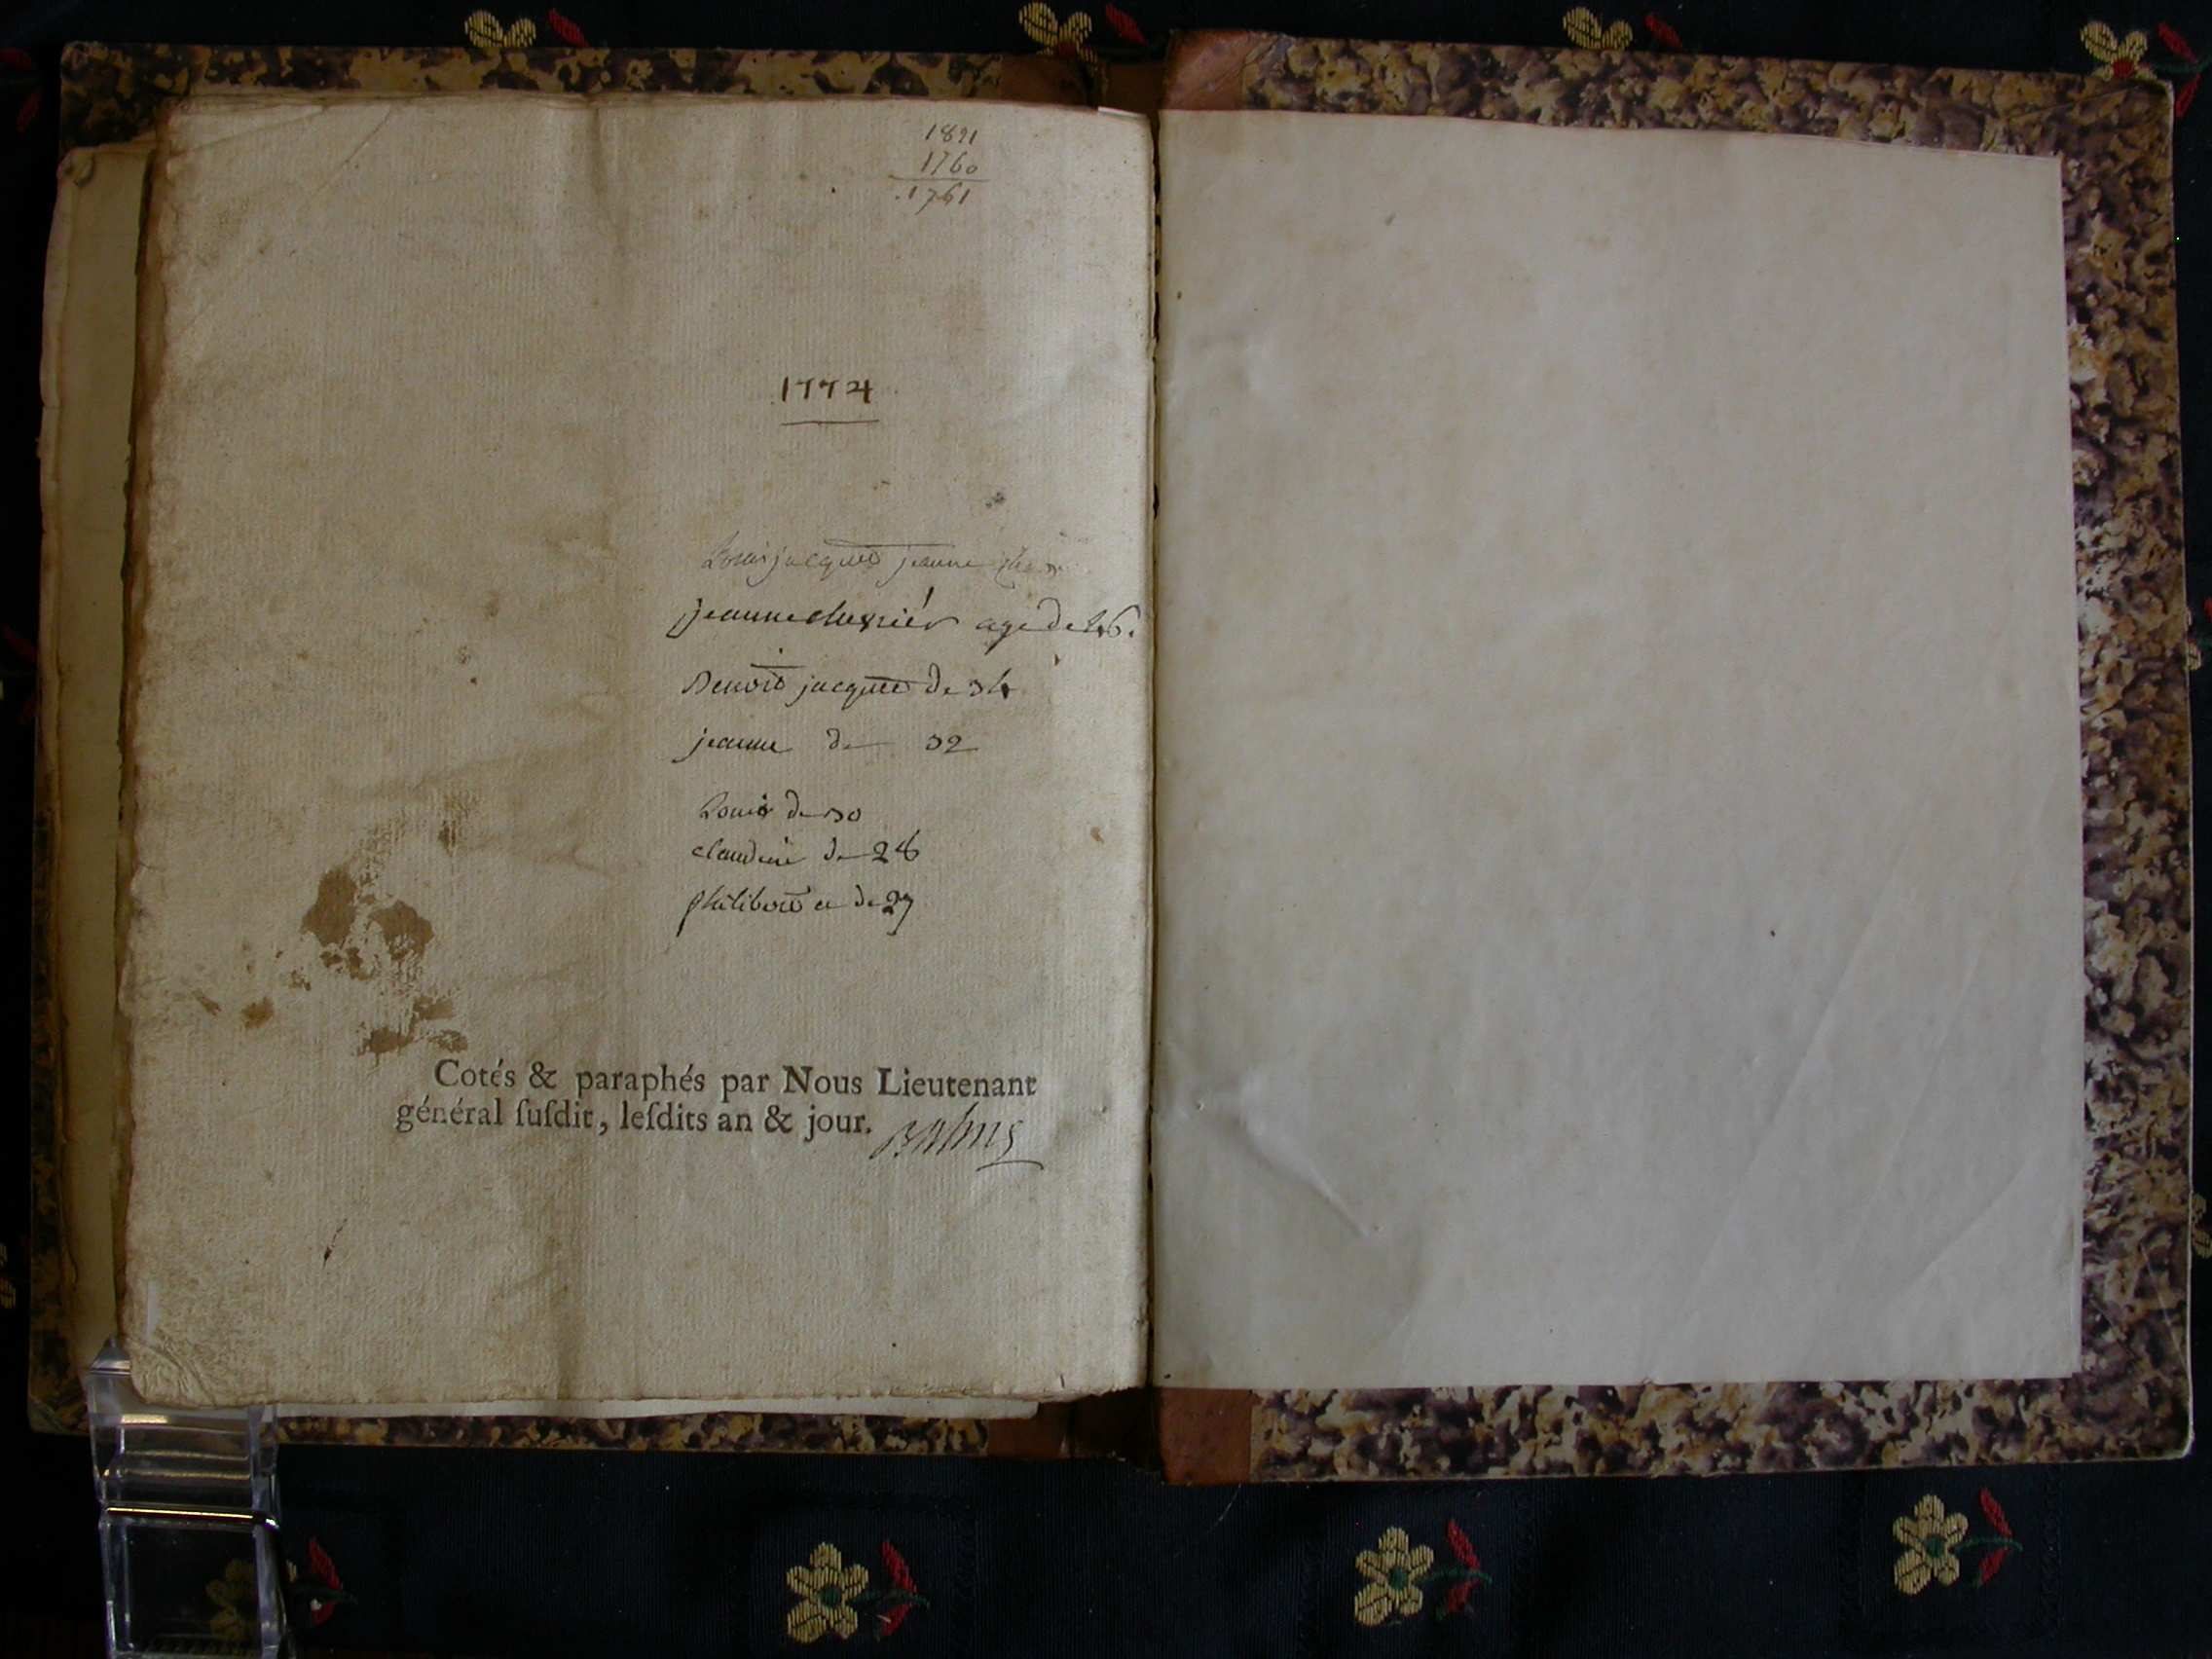 1891
1760
1761
1774
Louis jacquet jeanne
jeanne cherrier age de 46.
Benoit jacquet de 34
jeanne de 32
Louis de 30
claudine de 28
philiberte de 27
Cotés & paraphés par Nous Lieutenant
général ſuſdit, leſdits an & jour.